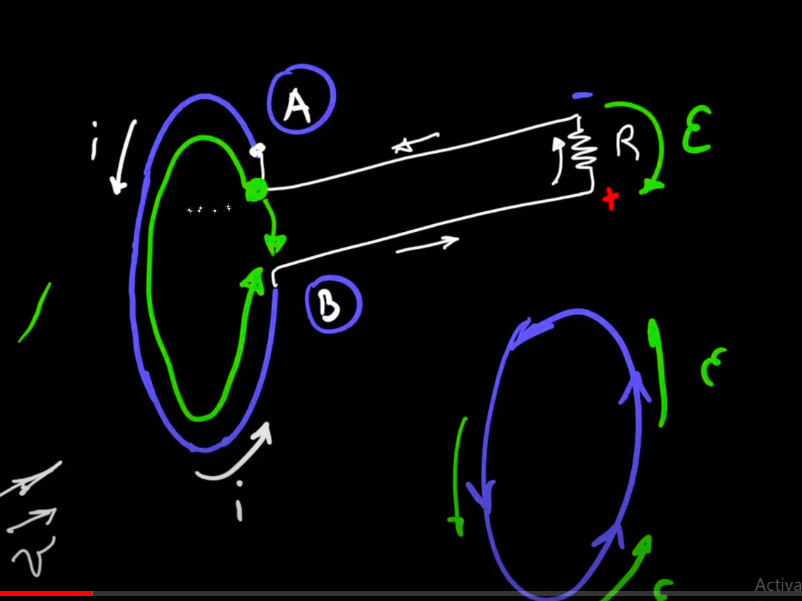 A
-
i
R
ε
+
B
ε
i
v
ε
Activa